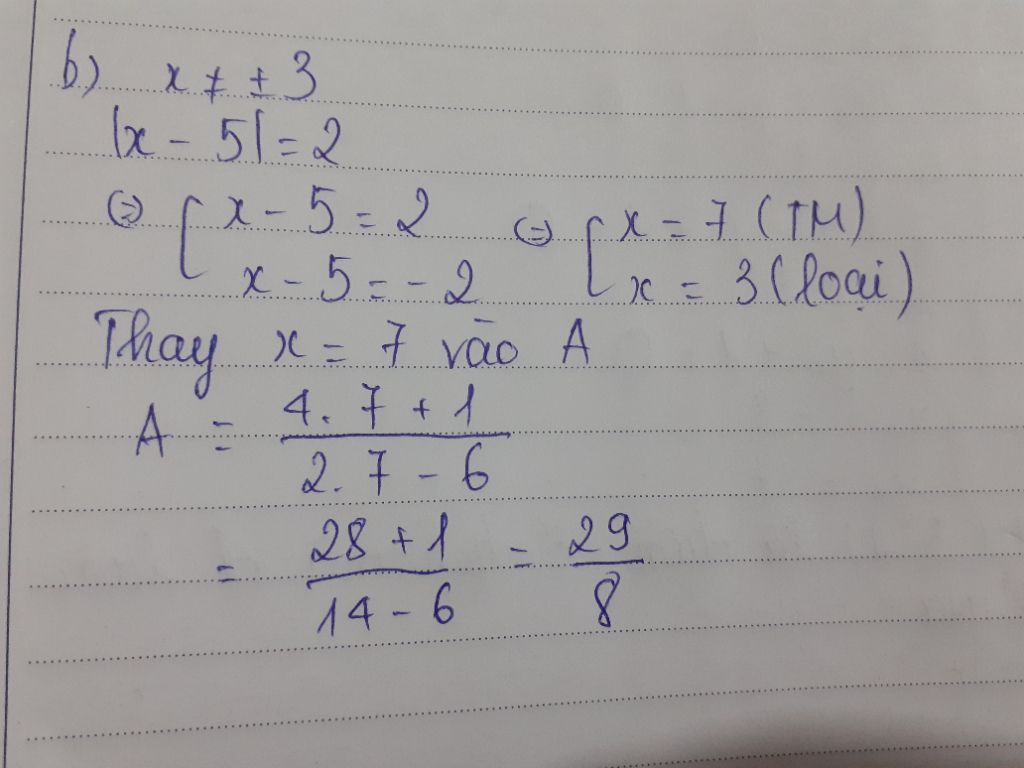 b) x ≠ ± 3
|x - 5| = 2
⇔ [ x - 5 = 2 ⇔ [ x = 7 (TM)
x - 5 = - 2 x = 3 (loại)
Thay x = 7 vào A
A = (4. 7 + 1) / (2. 7 - 6)
= (28 + 1) / (14 - 6) = 29 / 8